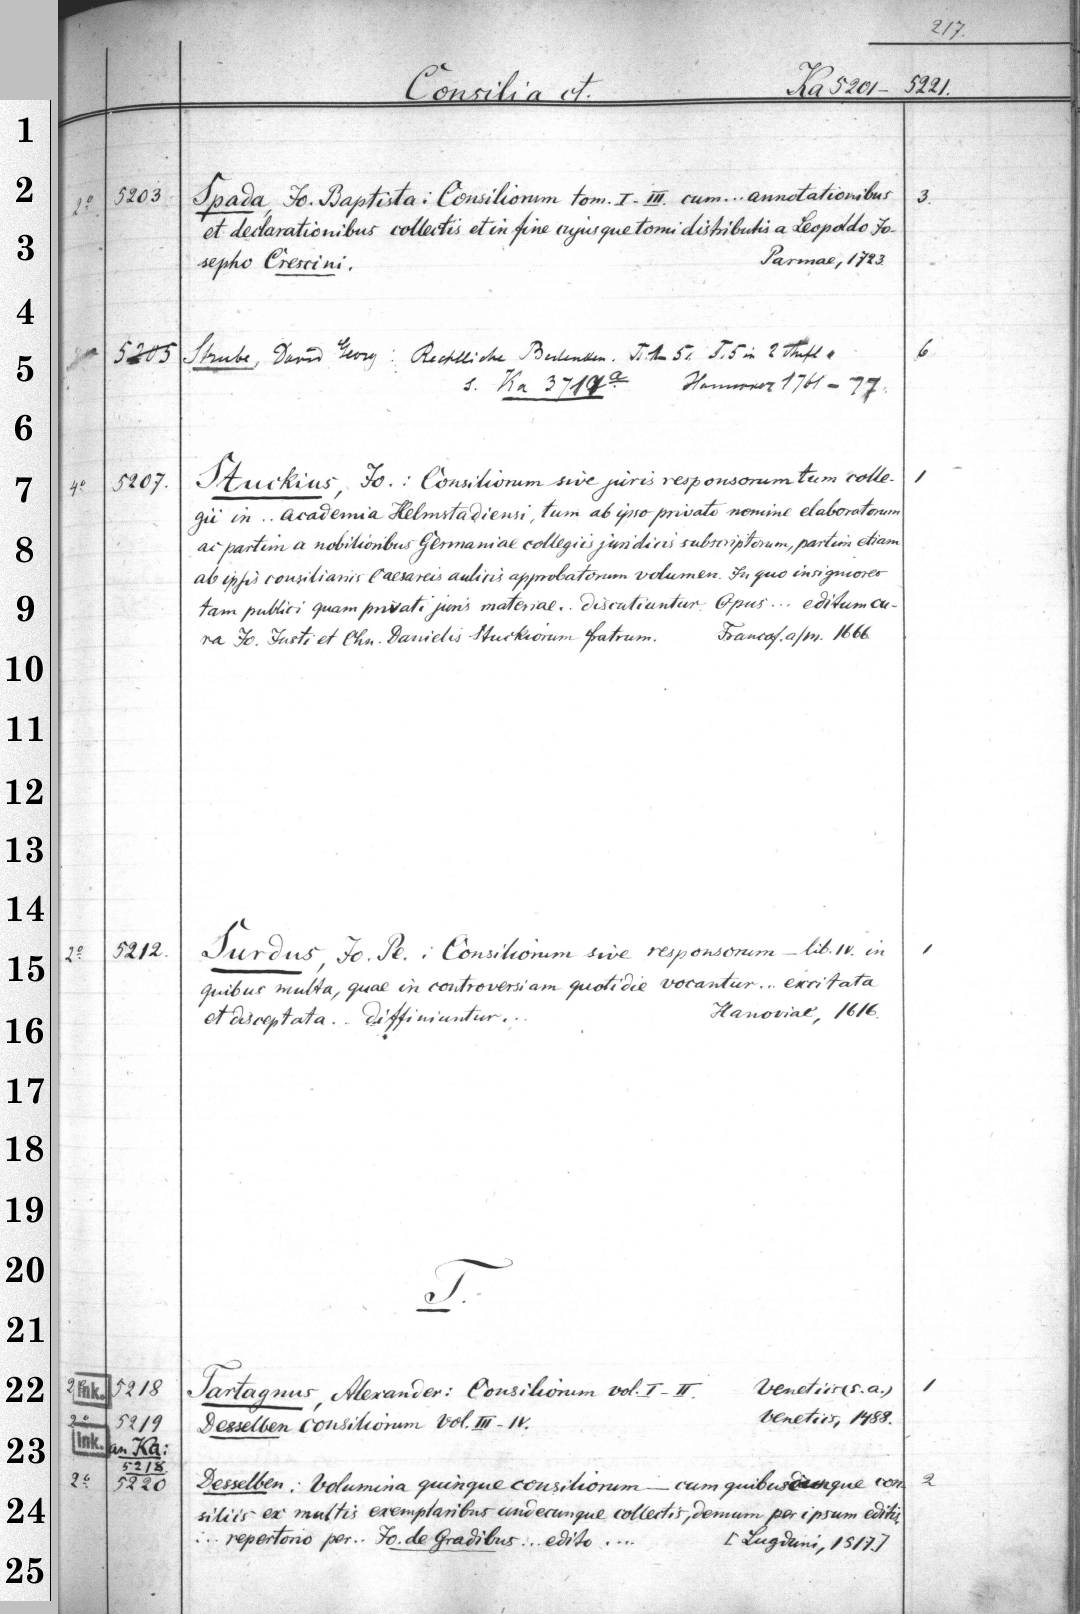 217.
Consilia et. Ka 5201- 5221.
1
2
3
4
5
6
7
8
9
10
11
12
13
14
15
16
17
18
19
20
21
22
23
24
25
2º 5203 Spada, Jo. Baptista: Consiliorum tom. I - III. cum... annotationibus 3.
et declarationibus collectis et in fine cujusque tomi distributis a Leopoldo Jo-
sepho Crescini. Parmae, 1723
5205 Strube, David Georg: Rechtliche Bedenken. T. 1-5. T. 5 in 2 6
s. Ka 3719 a Hannover 1761 - 77.
4º 5207. Stuckius, Jo.: Consiliorum sive juris responsorum tum colle- 1
gii in .. academia Helmstadiensi, tum ab ipso privato nomine elaboratorum
ac partim a nobilioribus Germaniae collegiis juridicis subscriptorum, partim etiam
ab ipsis consiliariis Caesareis aulicis approbatorum volumen. In quo insigniores
tam publici quam privati juris materiae.. discutiuntur. Opus... editum cu-
ra Jo. Justi et Chn. Danielis Stuckiorum fratrum. Francof. a/m. 1666
2º 5212. Surdus, Jo. Pe.: Consiliorum sive responsorum - lib. IV. in 1
quibus multa, quae in controversiam quotidie vocantur... excitata
et disceptata... diffiniuntur... Hanoviae, 1616.
T.
2º Ink. 5218 Tartagnus, Alexander: Consiliorum vol. I - II. Venetiis (s.a.) 1
2º 5219 Desselben Consiliorum Vol. III - IV. Venetiis, 1488.
Ink. an Ka:
5218
2º 5220 Desselben: Volumina quinque consiliorum - cum quibuscunque con- 2
siliis ex multis exemplaribus undecunque collectis, demum per ipsum editis
... repertorio per.. Jo. de Gradibus... edito .... [Lugduni, 1517.]